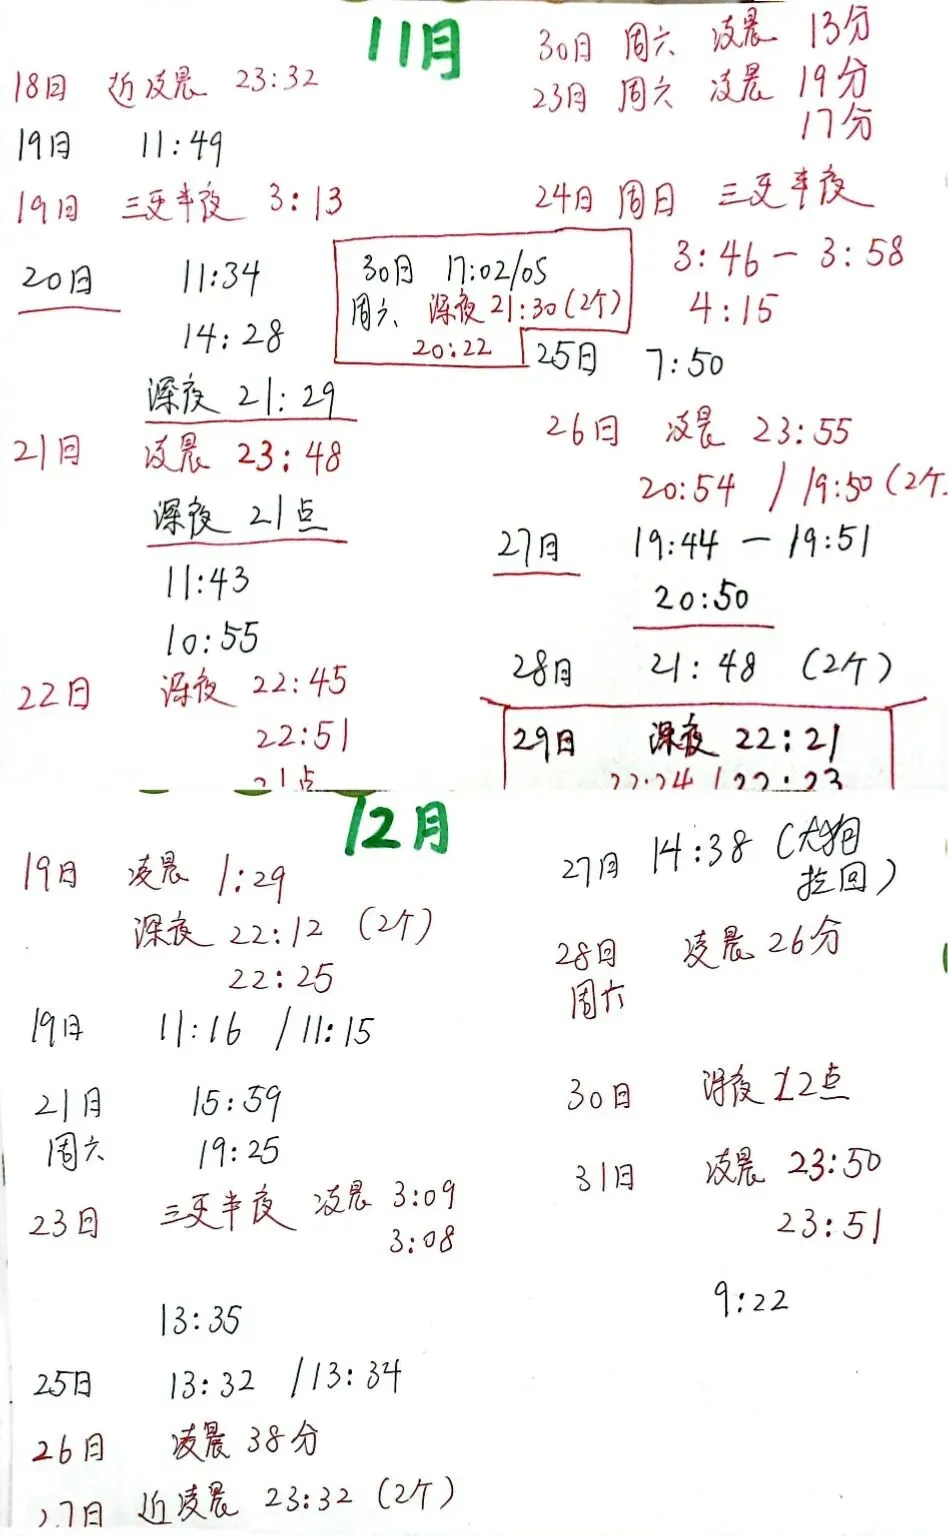 11月
18日 近凌晨 23:32
19日 11:49
19日 三更半夜 3:13
20日 11:34
14:28
深夜 21:29
21日 凌晨 23:48
深夜 21点
11:43
10:55
22日 深夜 22:45
22:51
21点
30日 17:02/05
周六、深夜 21:30(2个)
20:22
30日 周六 凌晨 13分
23日 周六 凌晨 19分
17分
24日 周日 三更半夜
3:46 — 3:58
4:15
25日 7:50
26日 凌晨 23:55
20:54 / 19:50(2个
27日 19:44 — 19:51
20:50
28日 21:48 (2个)
29日 深夜 22:21
22:24 / 22:23
12月
19日 凌晨 1:29
深夜 22:12 (2个)
22:25
19日 11:16 / 11:15
21日 15:59
周六 19:25
23日 三更半夜 凌晨 3:09
3:08
13:35
25日 13:32 / 13:34
26日 凌晨 38分
27日 近凌晨 23:32 (2个)
27日 14:38 (大狗
拉回)
28日 凌晨 26分
周六
30日 深夜 12点
31日 凌晨 23:50
23:51
9:22